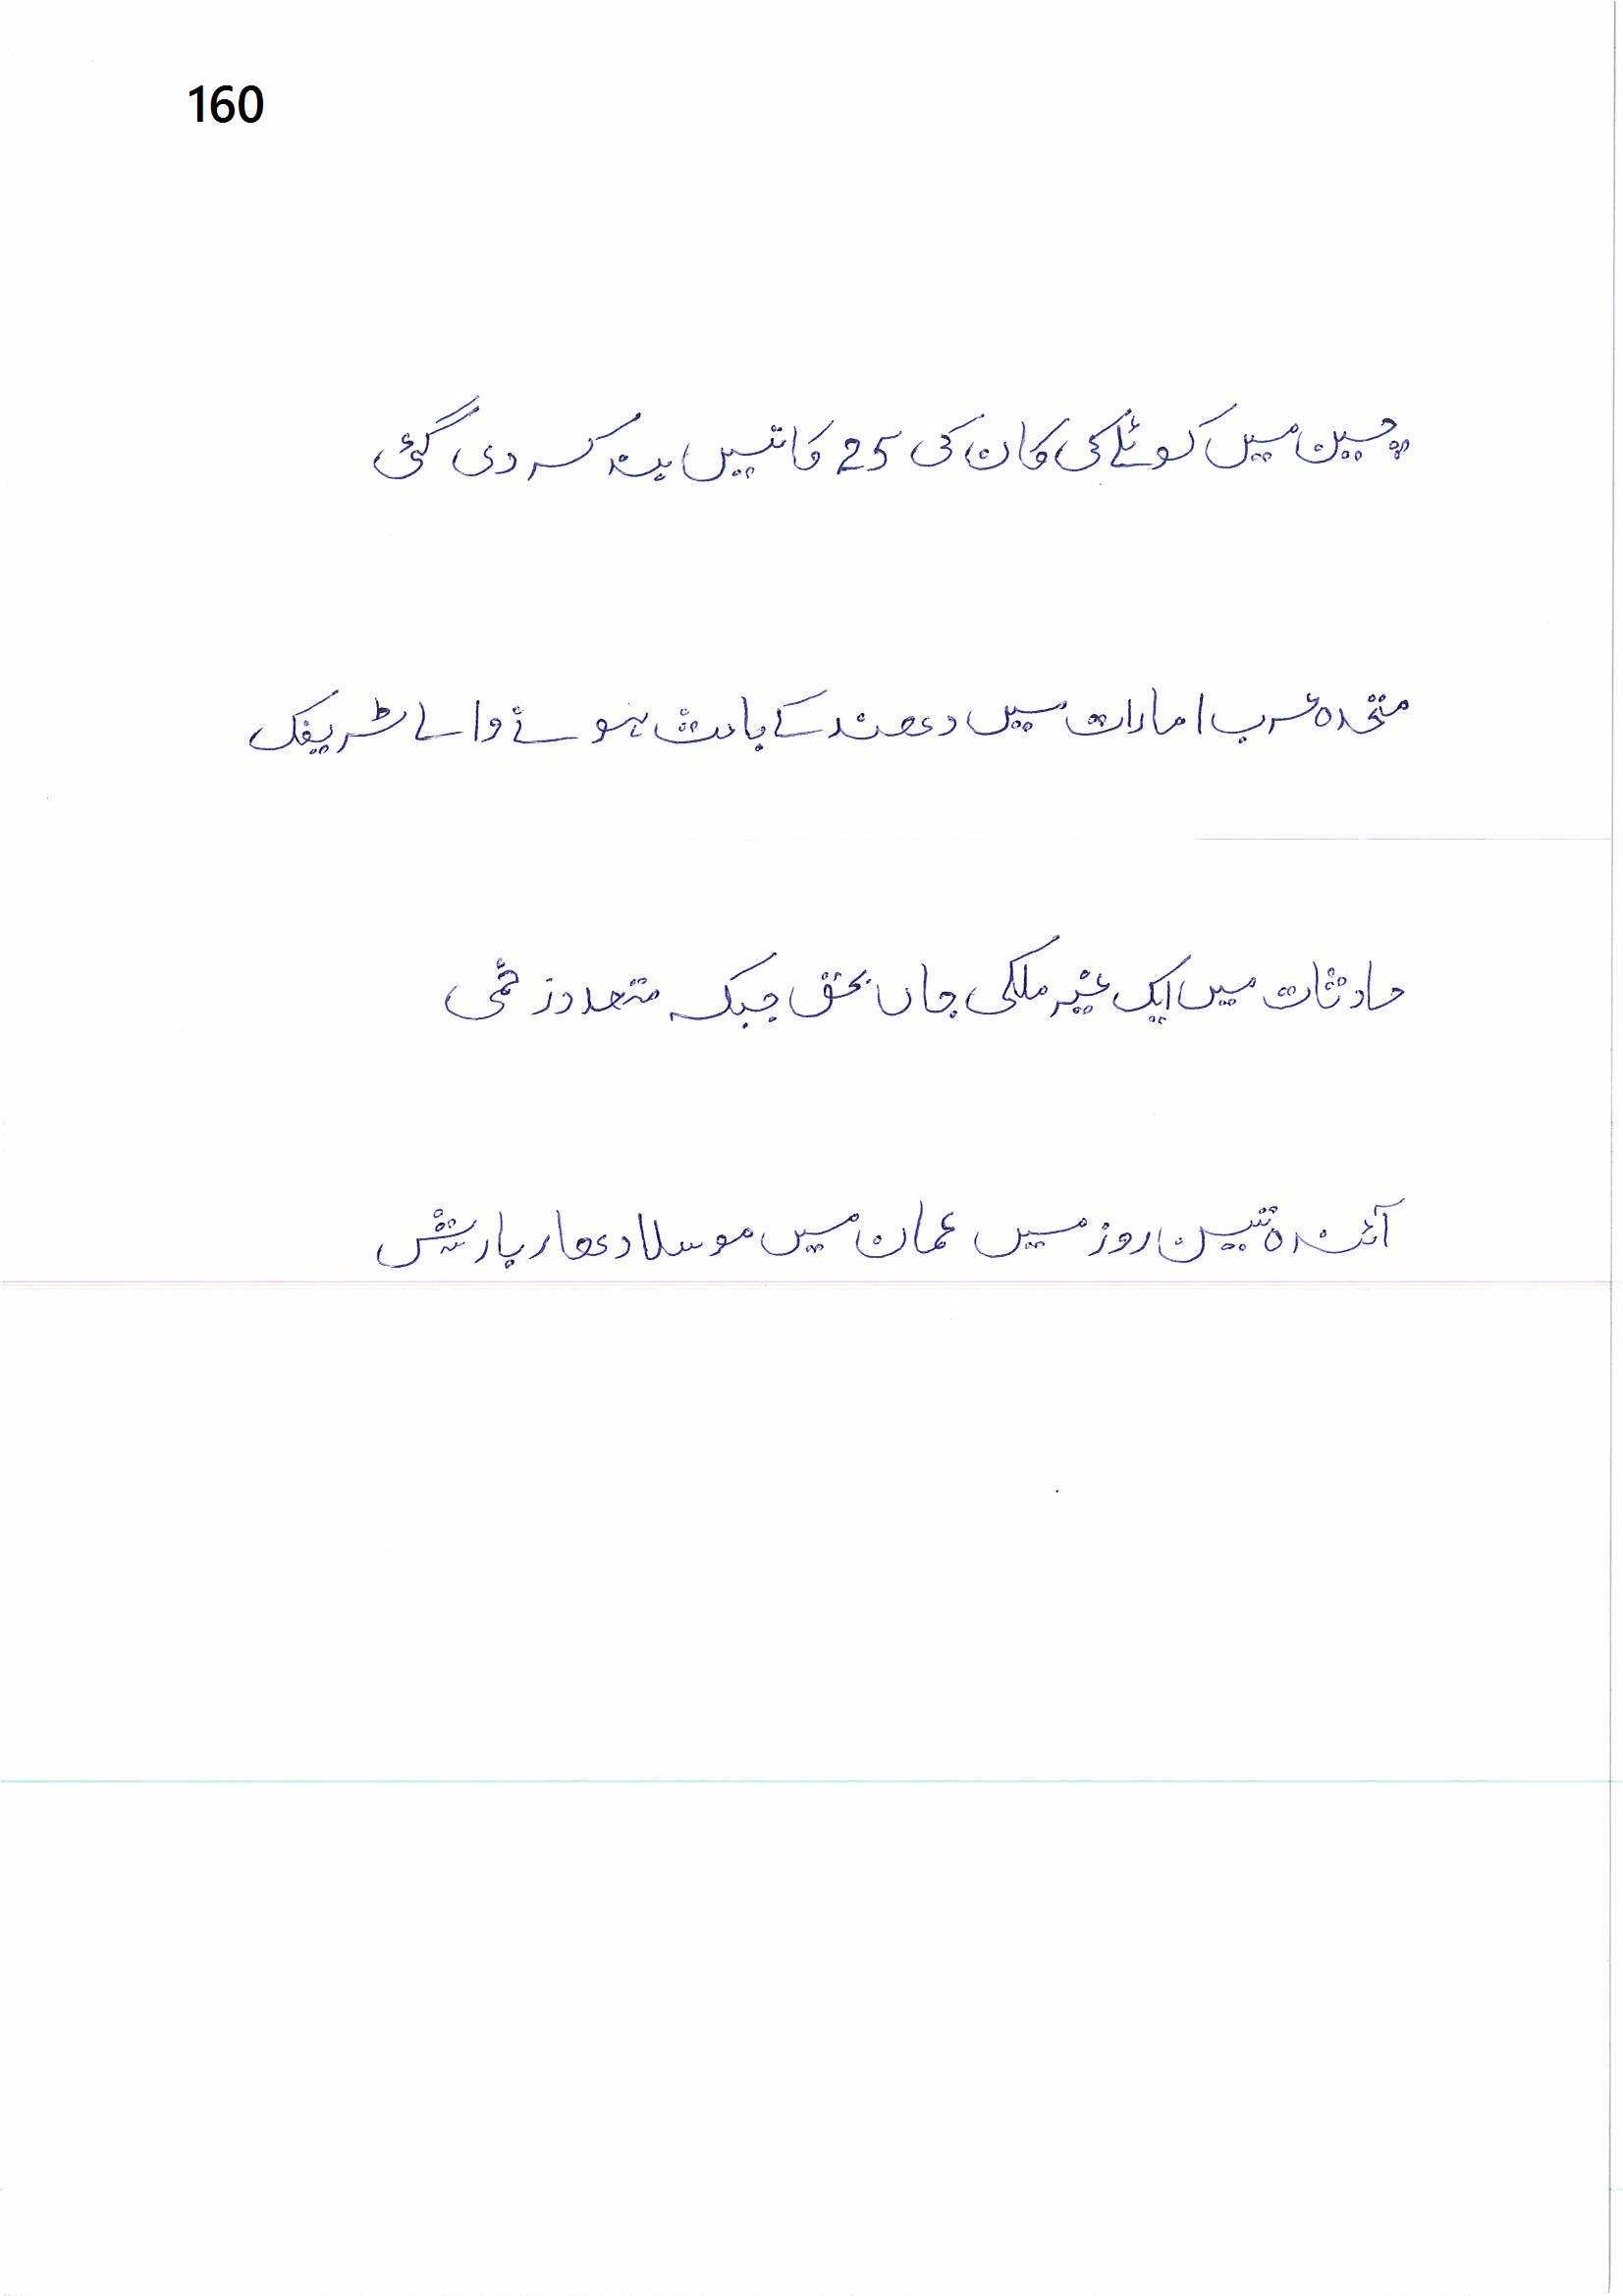 160
چین میں کوئلے کی کان کی 25 کانیں بند کر دی گئی
متحدہ عرب امارات میں دھند کے باعث ہونے والے ٹریفک
حادثات میں ایک غیر ملکی جاں بحق جبکہ متعدد زخمی
آئندہ تین روز میں عمان میں موسلادھار بارش